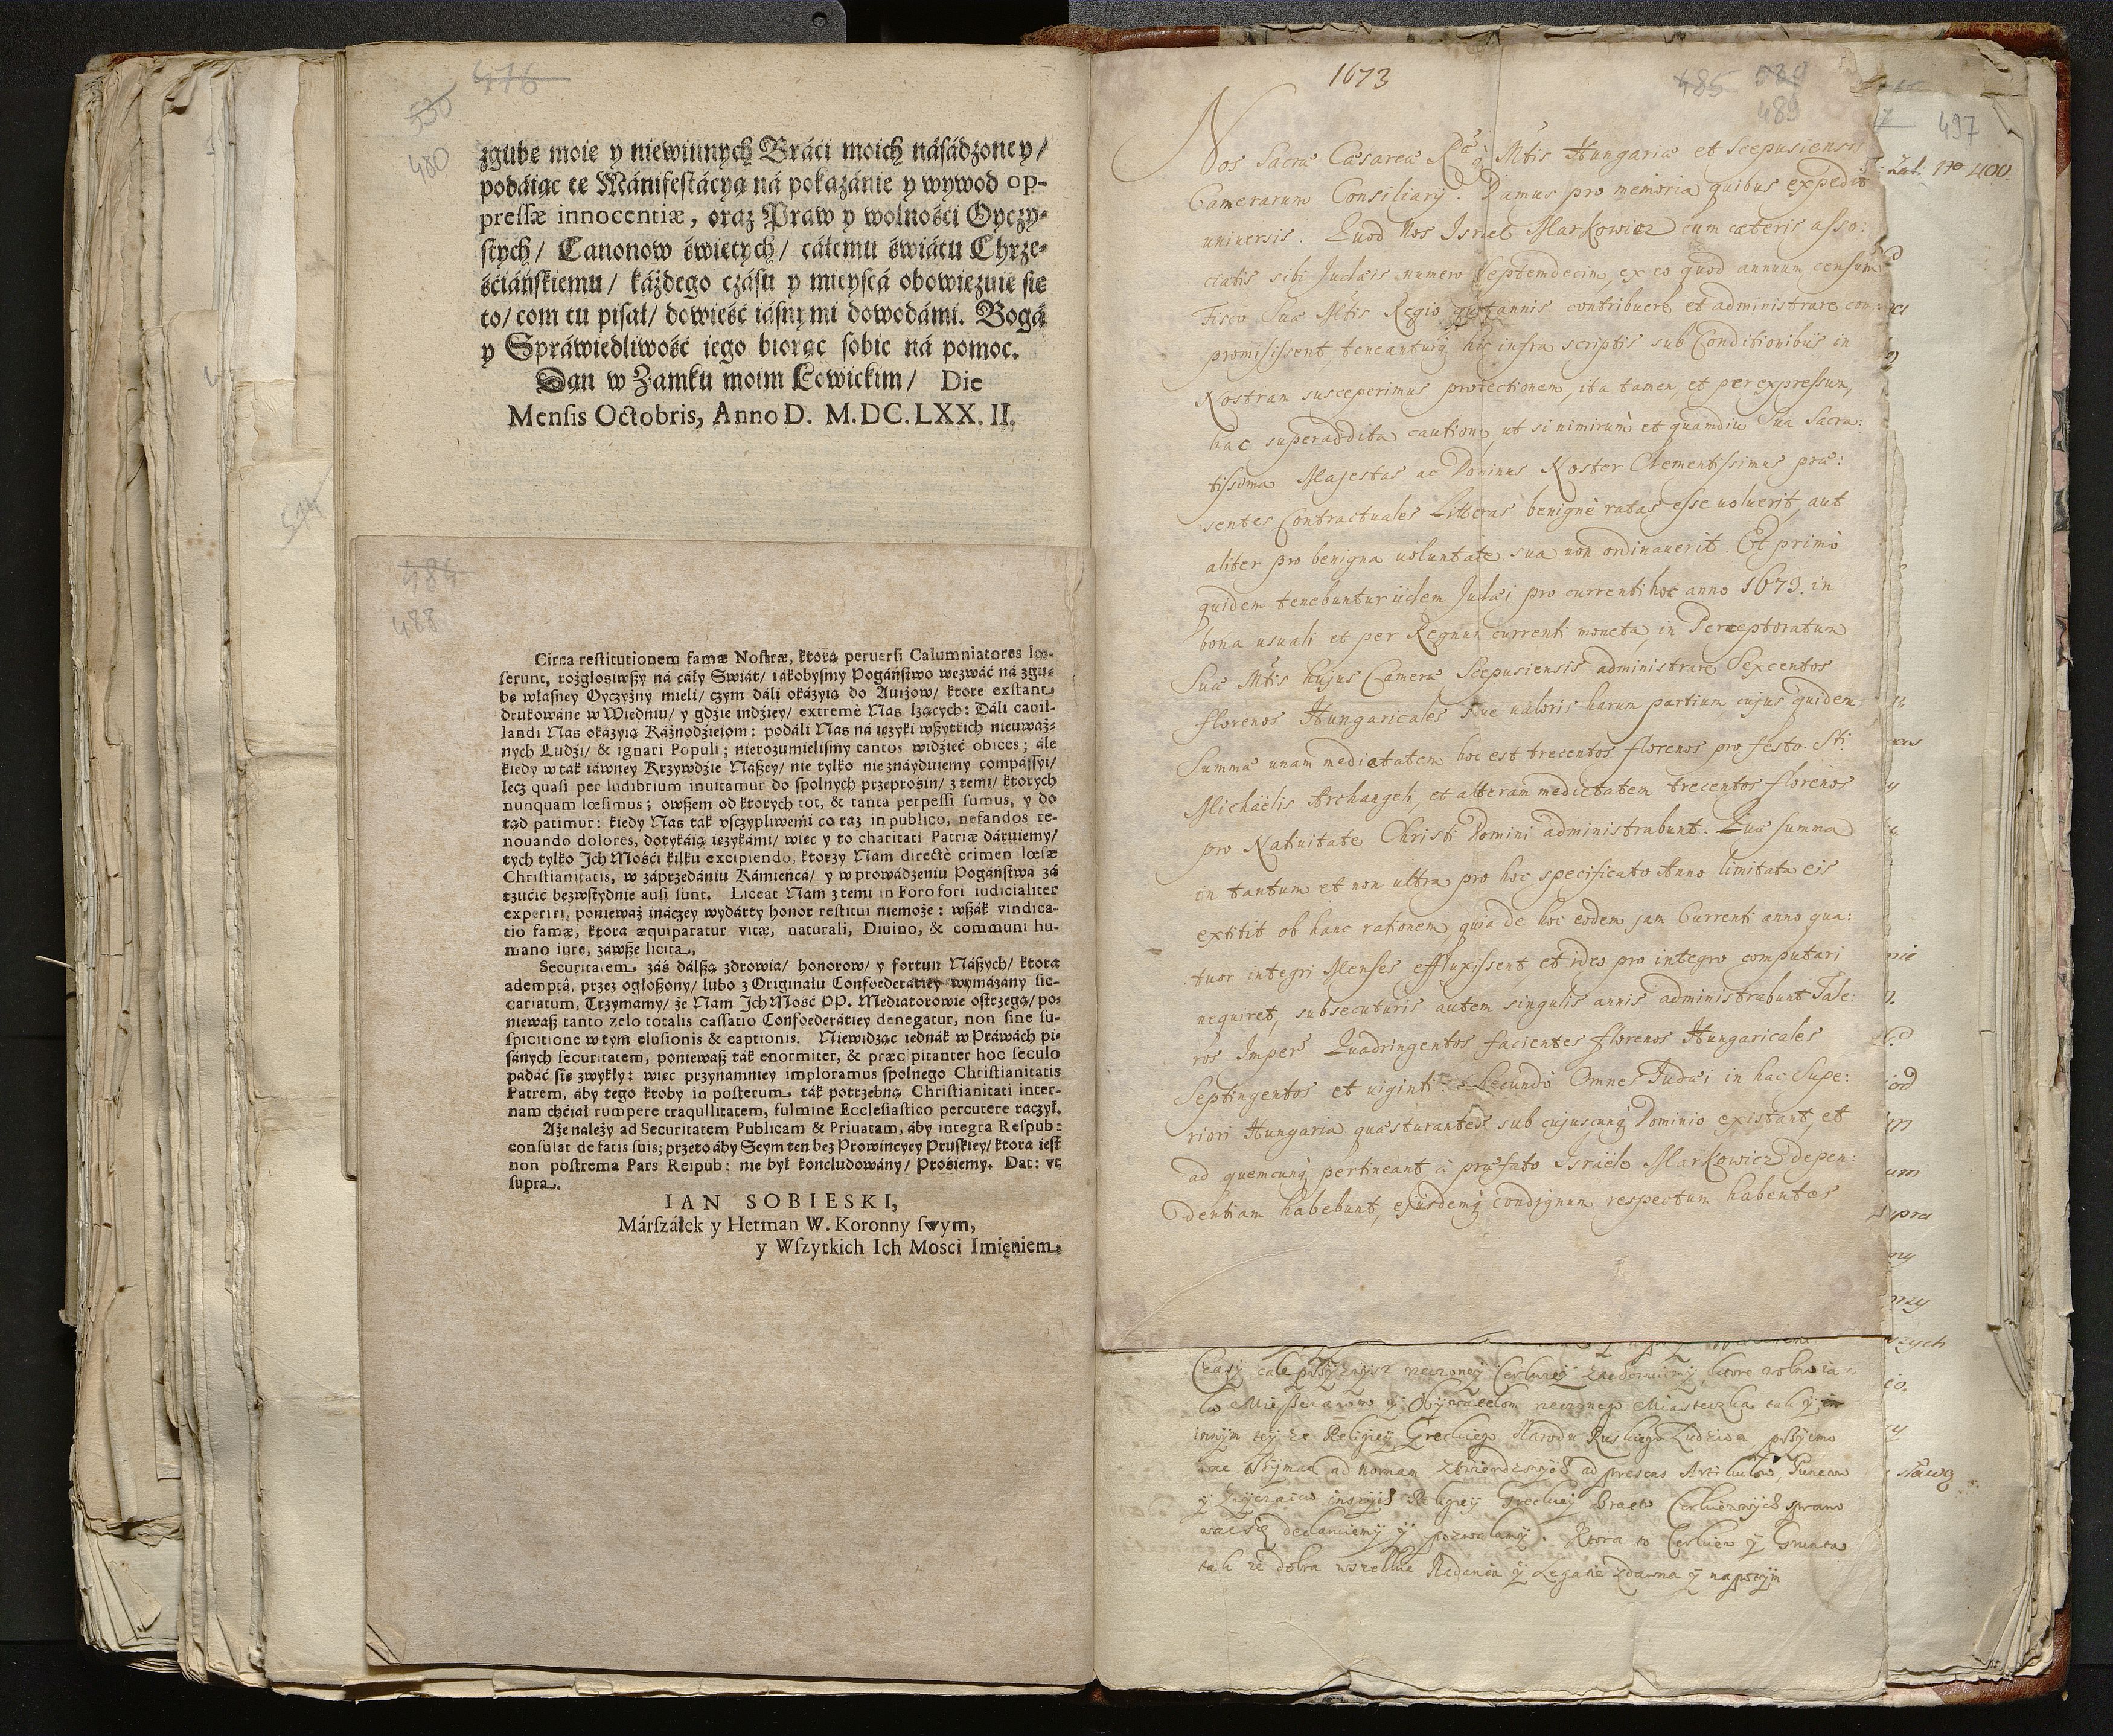 476
530
480
zgubę moię y niewinnych Bráći moich násádzoney/
podáiąc tę Mánifestácyą ná pokazánie y wywod op-
pressæ innocentiæ, oraz Praw y wolnośći Oyczy-
stych/ Canonow świętych/ cáłemu świátu Chrze-
śćiáńskiemu/ káżdego czásu y mieyscá obowięzuię się
to/ com tu pisał/ dowieść iásnymi dowodámi. Bogá
y Spráwiedliwość iego biorąc sobie ná pomoc.
Dan w Zamku moim Łowickim/ Die
Mensis Octobris, Anno D. M.DC.LXX.II.
514
488
Circa restitutionem famæ Nostræ, ktorą peruersi Calumniatores læ-
serunt, rozgłosiwszy ná cáły Swiát/ iákobysmy Pogáństwo wezwáć ná zgu-
bę własney Oyczyzny mieli/ czym dáli okázyią do Auizow/ ktore exstant
drukowáne w Wiedniu/ y gdzie indziey/ extremè Nas lżących: Dáli cauil-
landi Nas okázyią Káznodzieiom: podáli Nas ná ięzyki wszytkich nieuważ-
nych Ludzi/ & ignari Populi; nierozumielismy tantos widzieć obices; ále
kiedy w ták iáwney Krzywdzie Nászey/ nie tylko nie znáyduiemy compássyi/
lecz quasi per ludibrium inuitamur do spolnych przeprosin/ z temi/ ktorych
nunquam læsimus; owszem od ktorych tot, & tanta perpessi sumus, y do
tąd patimur: kiedy Nas ták vsczypliwemi co raz in publico, nefandos re-
nouando dolores, dotykáią ięzykámi/ więc y to charitati Patriæ dáruiemy/
tych tylko Ich Mośći kilku excipiendo, ktorzy Nam directè crimen læsæ
Christianitatis, w záprzedániu Kámieńcá/ y wprowádzeniu Pogáństwá zá
rzućić bezwstydnie ausi sunt. Liceat Nam z temi in Foro fori iudicialiter
experiri, ponieważ ináczey wydárty honor restitui niemoże: wszák vindica-
tio famæ, ktora æquiparatur vitæ, naturali, Diuino, & communi hu-
mano iure, záwsze licita,
Securitatem záś dálszą zdrowia/ honorow/ y fortun Nászych/ ktora
ademptá, przez ogłoszony/ lubo z Originału Confoederátiey wymázány sic-
cariatum, Trzymamy/ że Nam Ich Mość PP. Mediatorowie ostrzegą/ po-
niewasz tanto zelo totalis cassatio Confoederátiey denegatur, non sine su-
spicitione w tym elusionis & captionis. Niewidząc iednák w Práwách pi-
sánych securitatem, poniewasz ták enormiter, & præcipitanter hoc seculo
pádáć się zwykły: więc przynamniey imploramus spolnego Christianitatis
Patrem, áby tego ktoby in posterum ták potrzebną Christianitati inter-
nam chćiał rumpere traqullitatem, fulmine Ecclesiastico percutere raczył.
Aże należy ad Securitatem Publicam & Priuatam, áby integra Respub:
consulat de fatis suis; przeto áby Seym ten bez Prowincyey Pruskiey/ ktora iest
non postrema Pars Reipub: nie był koncludowány/ Prosiemy. Dat: vt
supra.
IAN SOBIESKI,
Márszáłek y Hetman W. Koronny swym,
y Wszytkich Ich Mosci Imięniem.
1673
485
489
497
Zał: No 400.
Nos Sacræ Cæsareæ Ræq Mtis Hungariæ et Scepusiensis
Camerarum Consiliarij. Damus pro memoria quibus expedit
uniuersis. Quod Nos Israel Markowicz cum cæteris asso:
ciatis sibi Judæis numero Septemdecim, ex eo quod annuum censum
Fisco Suæ Mtis Regio quotannis contribuere et administrare
promisissent, teneanturq his infra scriptis sub Conditionibus in
Nostram susceperimus protectionem, ita tamen, et per expressum,
hac superaddita cautione, ut si nimirum et quamdiu Sua Sacra:
tissima Majestas ac Dominus Noster Clementissimus præ:
sentes Contractuales Litteras benignè ratas esse uoluerit, aut
aliter pro benigna uoluntate sua non ordinauerit. Et primò
quidem tenebuntur iidem Judæi pro currenti hoc anno 1673. in
bona usuali et per Regnum currenti moneta, in Perceptoratum
Suæ Mtis hujus Cameræ Scepusiensis administrare Sexcentos
florenos Hungaricales siue ualoris harum partium, cujus quidem
Summæ unam medietatem hoc est trecentos florenos pro festo Sti
Michaëlis Archangeli, et alteram medietatem trecentos florenos
pro Natiuitate Christi Domini administrabunt. Quæ summa
in tantum et non ultra pro hoc specificato Anno limitata eis
extitit ob hanc rationem, quia de hoc eodem jam Currenti anno qua:
tuor integri Menses effluxissent, et ideo pro integro computari
nequiret, subsecuturis autem singulis annis administrabunt Tale:
ros Imper Quadringentos facientes florenos Hungaricales
Septingentos et uiginti. Secundò Omnes Judæi in hac Supe:
riori Hungaria quæsturantes sub cujuscunq Dominio existant, et
ad quemcunq pertineant à præfato Israële Markowicz depen:
dentiam habebunt, ejusdemq condignum respectum habentes
Czasy cale rzeczoney Cerkwiey ktore wolno
Obywatelom rzeczonego Miasteczka tak y
innym tey ze Religiey Greckiego Narodu Ruskiego Ludziom
ad normam ad præsens Artikułow,
y Zwyczaiow inszych Religiey Greckiey Bractw Cerkiewnych sprawo
wac się deklaruiemy y pozwalamy. Ktora to Cerkiew y Grunta
tak ze dobra wszelkie Nadania y Legacie zdawna y